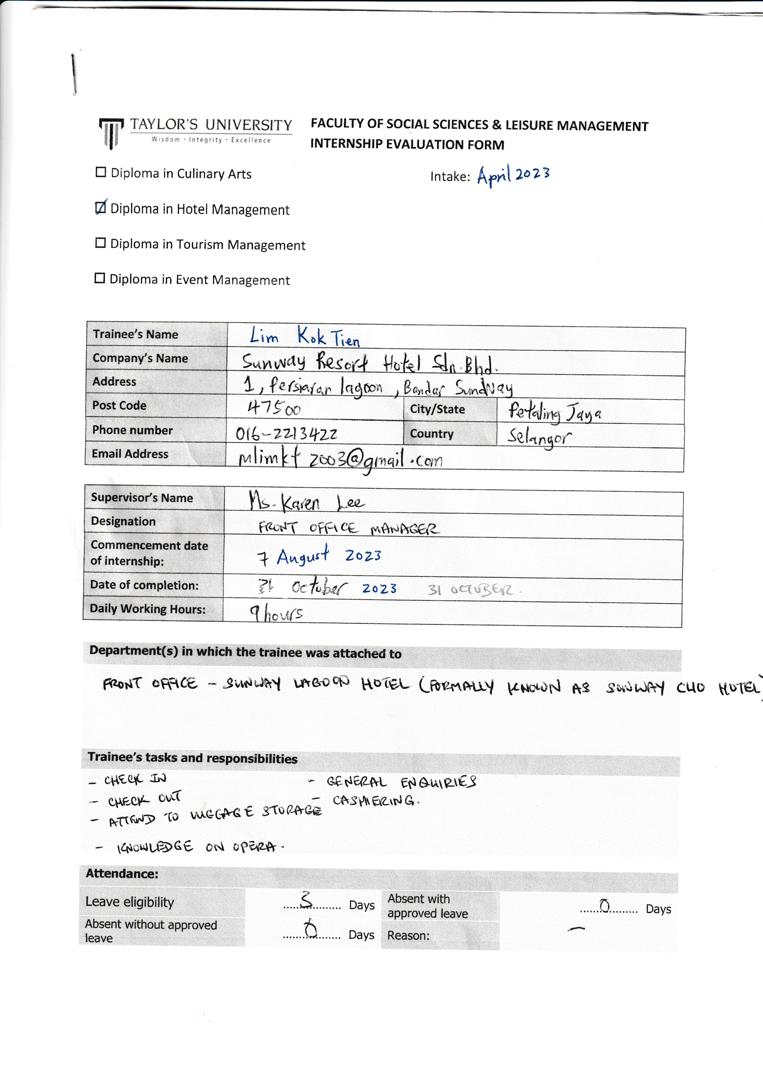 TAYLOR'S UNIVERSITY
Wisdom · Integrity · Excellence
FACULTY OF SOCIAL SCIENCES & LEISURE MANAGEMENT
INTERNSHIP EVALUATION FORM
☐ Diploma in Culinary Arts
Intake: April 2023
☑ Diploma in Hotel Management
☐ Diploma in Tourism Management
☐ Diploma in Event Management
Trainee's Name Lim Kok Tien
Company's Name Sunway Resort Hotel Sdn Bhd.
Address 1, Persiaran lagoon, Bandar Sundway
Post Code 47500 City/State Petaling Jaya
Phone number 016-2213422 Country Selangor
Email Address mlimkt2003@gmail.com
Supervisor's Name Ms. Karen Lee
Designation FRONT OFFICE MANAGER
Commencement date
of internship: 7 August 2023
Date of completion: 31 October 2023 31 OCTOBER.
Daily Working Hours: 9 hours
Department(s) in which the trainee was attached to
FRONT OFFICE - SUNWAY LAGOON HOTEL (FORMALLY KNOWN AS SUNWAY CLIO HOTEL)
Trainee's tasks and responsibilities
- CHECK IN - GENERAL ENQUIRIES
- CHECK OUT - CASHIERING.
- ATTEND TO LUGGAGE STORAGE
- KNOWLEDGE ON OPERA.
Attendance:
Leave eligibility .....3......... Days Absent with
approved leave ......0......... Days
Absent without approved
leave ......0...... Days Reason: -